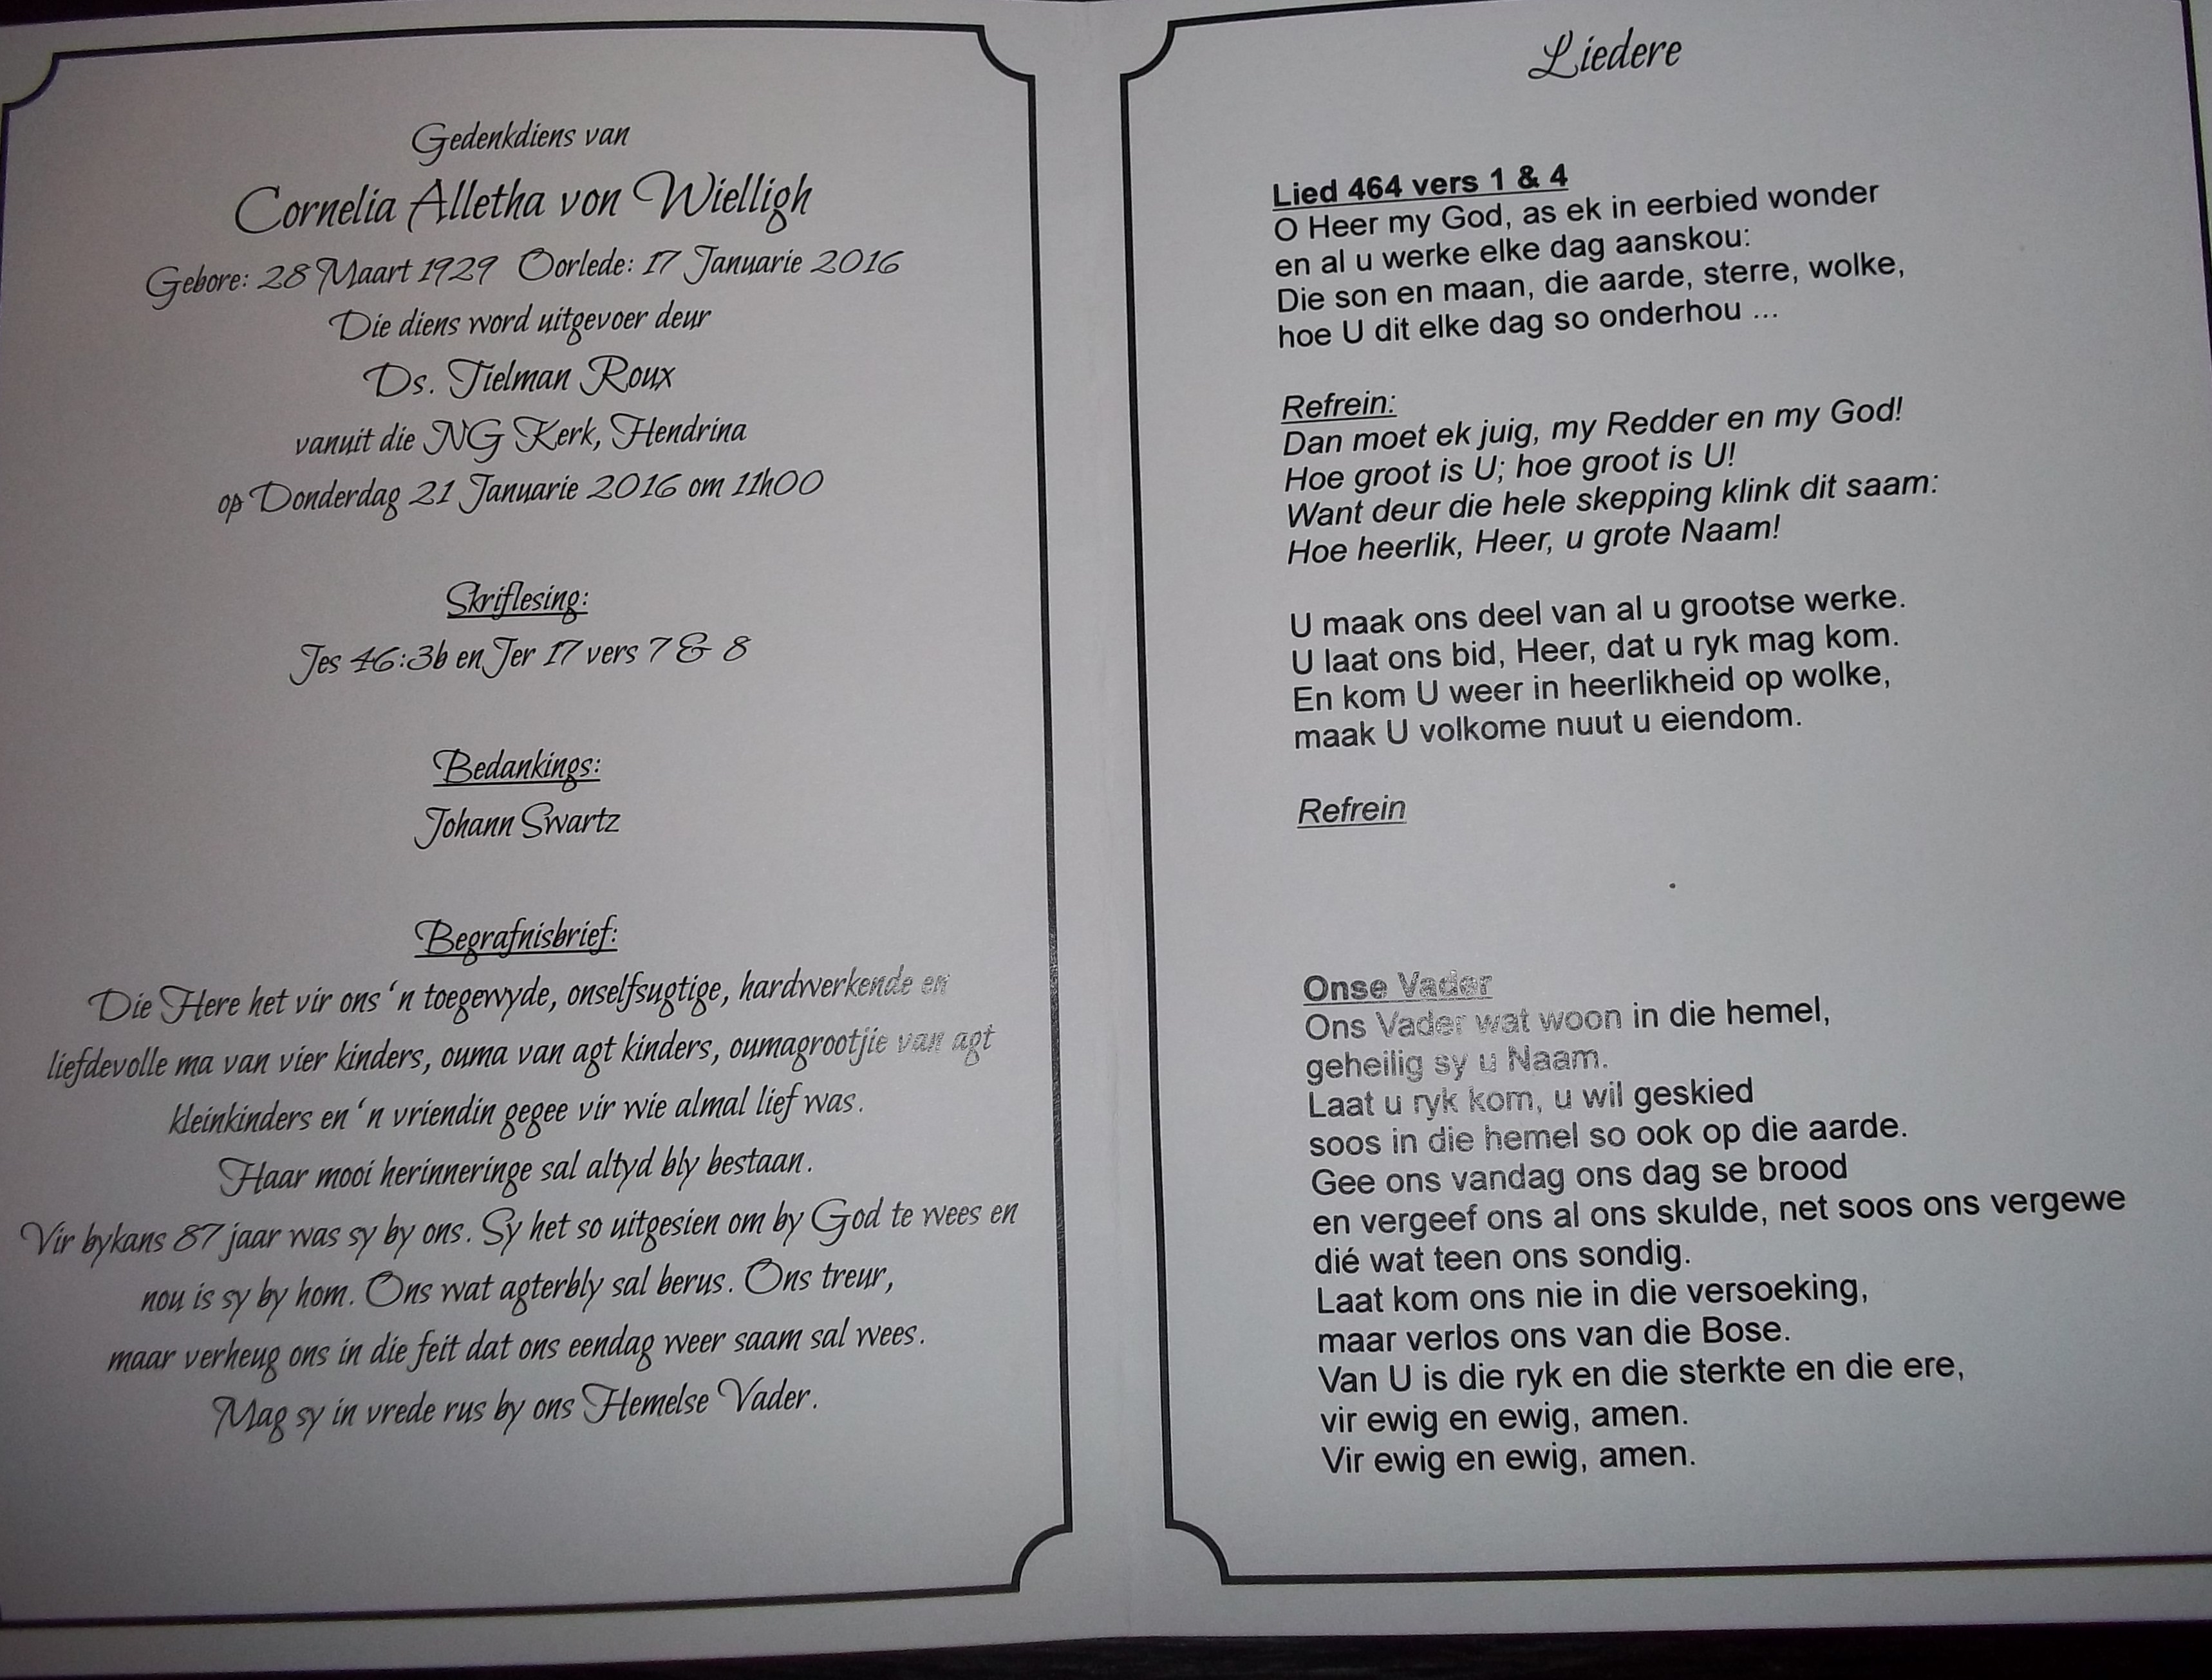 Gedenkdiens van
Cornelia Alletha von Wielligh
Gebore: 28 Maart 1929 Oorlede: 17 Januarie 2016
Die diens word uitgevoer deur
Ds. Tielman Roux
vanuit die NG Kerk, Hendrina
op Donderdag 21 Januarie 2016 om 11h00
Skriflesing:
Jes 46:3b en Jer 17 vers 7 & 8
Bedankings:
Johann Swartz
Begrafnisbrief:
Die Here het vir ons ‘n toegewyde, onselfsugtige, hardwerkende en
liefdevolle ma van vier kinders, ouma van agt kinders, oumagrootjie van agt
kleinkinders en ‘n vriendin gegee vir wie almal lief was.
Haar mooi herinneringe sal altyd bly bestaan.
Vir bykans 87 jaar was sy by ons. Sy het so uitgesien om by God te wees en
nou is sy by hom. Ons wat agterbly sal berus. Ons treur,
maar verheug ons in die feit dat ons eendag weer saam sal wees.
Mag sy in vrede rus by ons Hemelse Vader.
Liedere
Lied 464 vers 1 & 4
O Heer my God, as ek in eerbied wonder
en al u werke elke dag aanskou:
Die son en maan, die aarde, sterre, wolke,
hoe U dit elke dag so onderhou ...
Refrein:
Dan moet ek juig, my Redder en my God!
Hoe groot is U; hoe groot is U!
Want deur die hele skepping klink dit saam:
Hoe heerlik, Heer, u grote Naam!
U maak ons deel van al u grootse werke.
U laat ons bid, Heer, dat u ryk mag kom.
En kom U weer in heerlikheid op wolke,
maak U volkome nuut u eiendom.
Refrein
Onse Vader
Ons Vader wat woon in die hemel,
geheilig sy u Naam.
Laat u ryk kom, u wil geskied
soos in die hemel so ook op die aarde.
Gee ons vandag ons dag se brood
en vergeef ons al ons skulde, net soos ons vergewe
dié wat teen ons sondig.
Laat kom ons nie in die versoeking,
maar verlos ons van die Bose.
Van U is die ryk en die sterkte en die ere,
vir ewig en ewig, amen.
Vir ewig en ewig, amen.